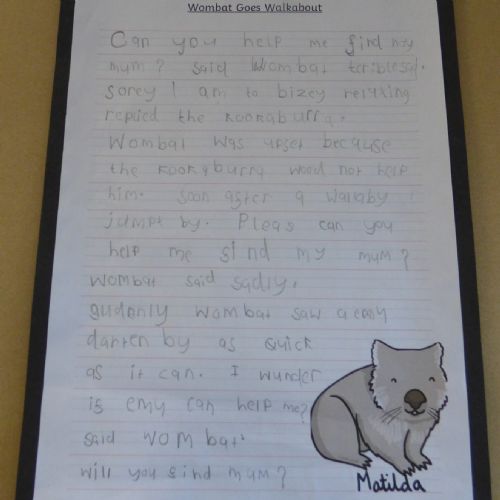 Wombat Goes Walkabout
Can you help me find my
mum? said Wombat teriblesad.
Sorey I am to bizey relyxing
replied the kookaburra.
Wombat was upset because
the kookaburra wood not help
him. Soon after a wallaby
jumpt by. Pleas can you
help me find my mum?
Wombat said sadly.
Suddnly Wombat saw a emy
darten by as quick
as it can. I wunder
is emy can help me?
said Wombat.
will you find mum?
Matilda